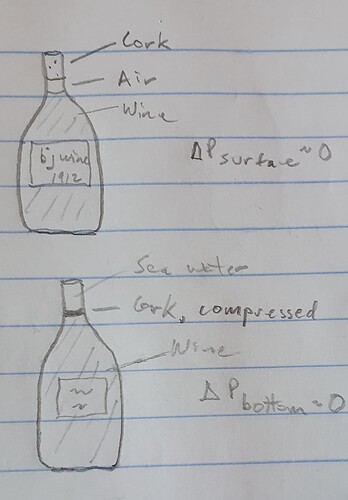 Cork
Air
Wine
bjwine
1912
ΔPsurface ~ 0
Sea water
Cork, compressed
Wine
ΔPbottom ~ 0